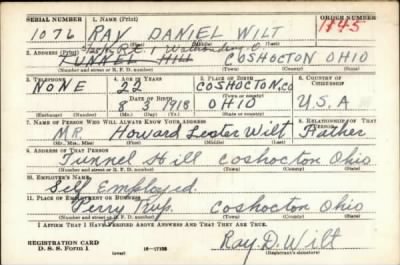 SERIAL NUMBER 1. NAME (Print) ORDER NUMBER
1076 RAY DANIEL WILT 1845
(First) (Middle) (Last)
R#1
2. ADDRESS (Print)
TUNNEL HILL COSHOCTON OHIO
(Number and street or R. F. D. number) (Town) (County) (State)
3. TELEPHONE 4. AGE IN YEARS 5. PLACE OF BIRTH 6. COUNTRY OF CITIZENSHIP
NONE 22 COSHOCTON.CO
DATE OF BIRTH (Town or county)
8 3 1918 OHIO U.S.A
(Exchange) (Number) (Mo.) (Day) (Yr.) (State or country)
7. NAME OF PERSON WHO WILL ALWAYS KNOW YOUR ADDRESS 8. RELATIONSHIP OF THAT PERSON
MR. Howard Lester Wilt Father
(Mr., Mrs., Miss) (First) (Middle) (Last)
9. ADDRESS OF THAT PERSON
Tunnel Hill Coshocton Ohio
(Number and street or R. F. D. number) (Town) (County) (State)
10. EMPLOYER'S NAME
Self Employed.
11. PLACE OF EMPLOYMENT OR BUSINESS
Perry Twp. Coshocton Ohio
(Number and street or R. F. D. number) (Town) (County) (State)
I AFFIRM THAT I HAVE VERIFIED ABOVE ANSWERS AND THAT THEY ARE TRUE.
REGISTRATION CARD
D. S. S. Form 1 (over) 16—17105 Ray D. Wilt
(Registrant's signature)